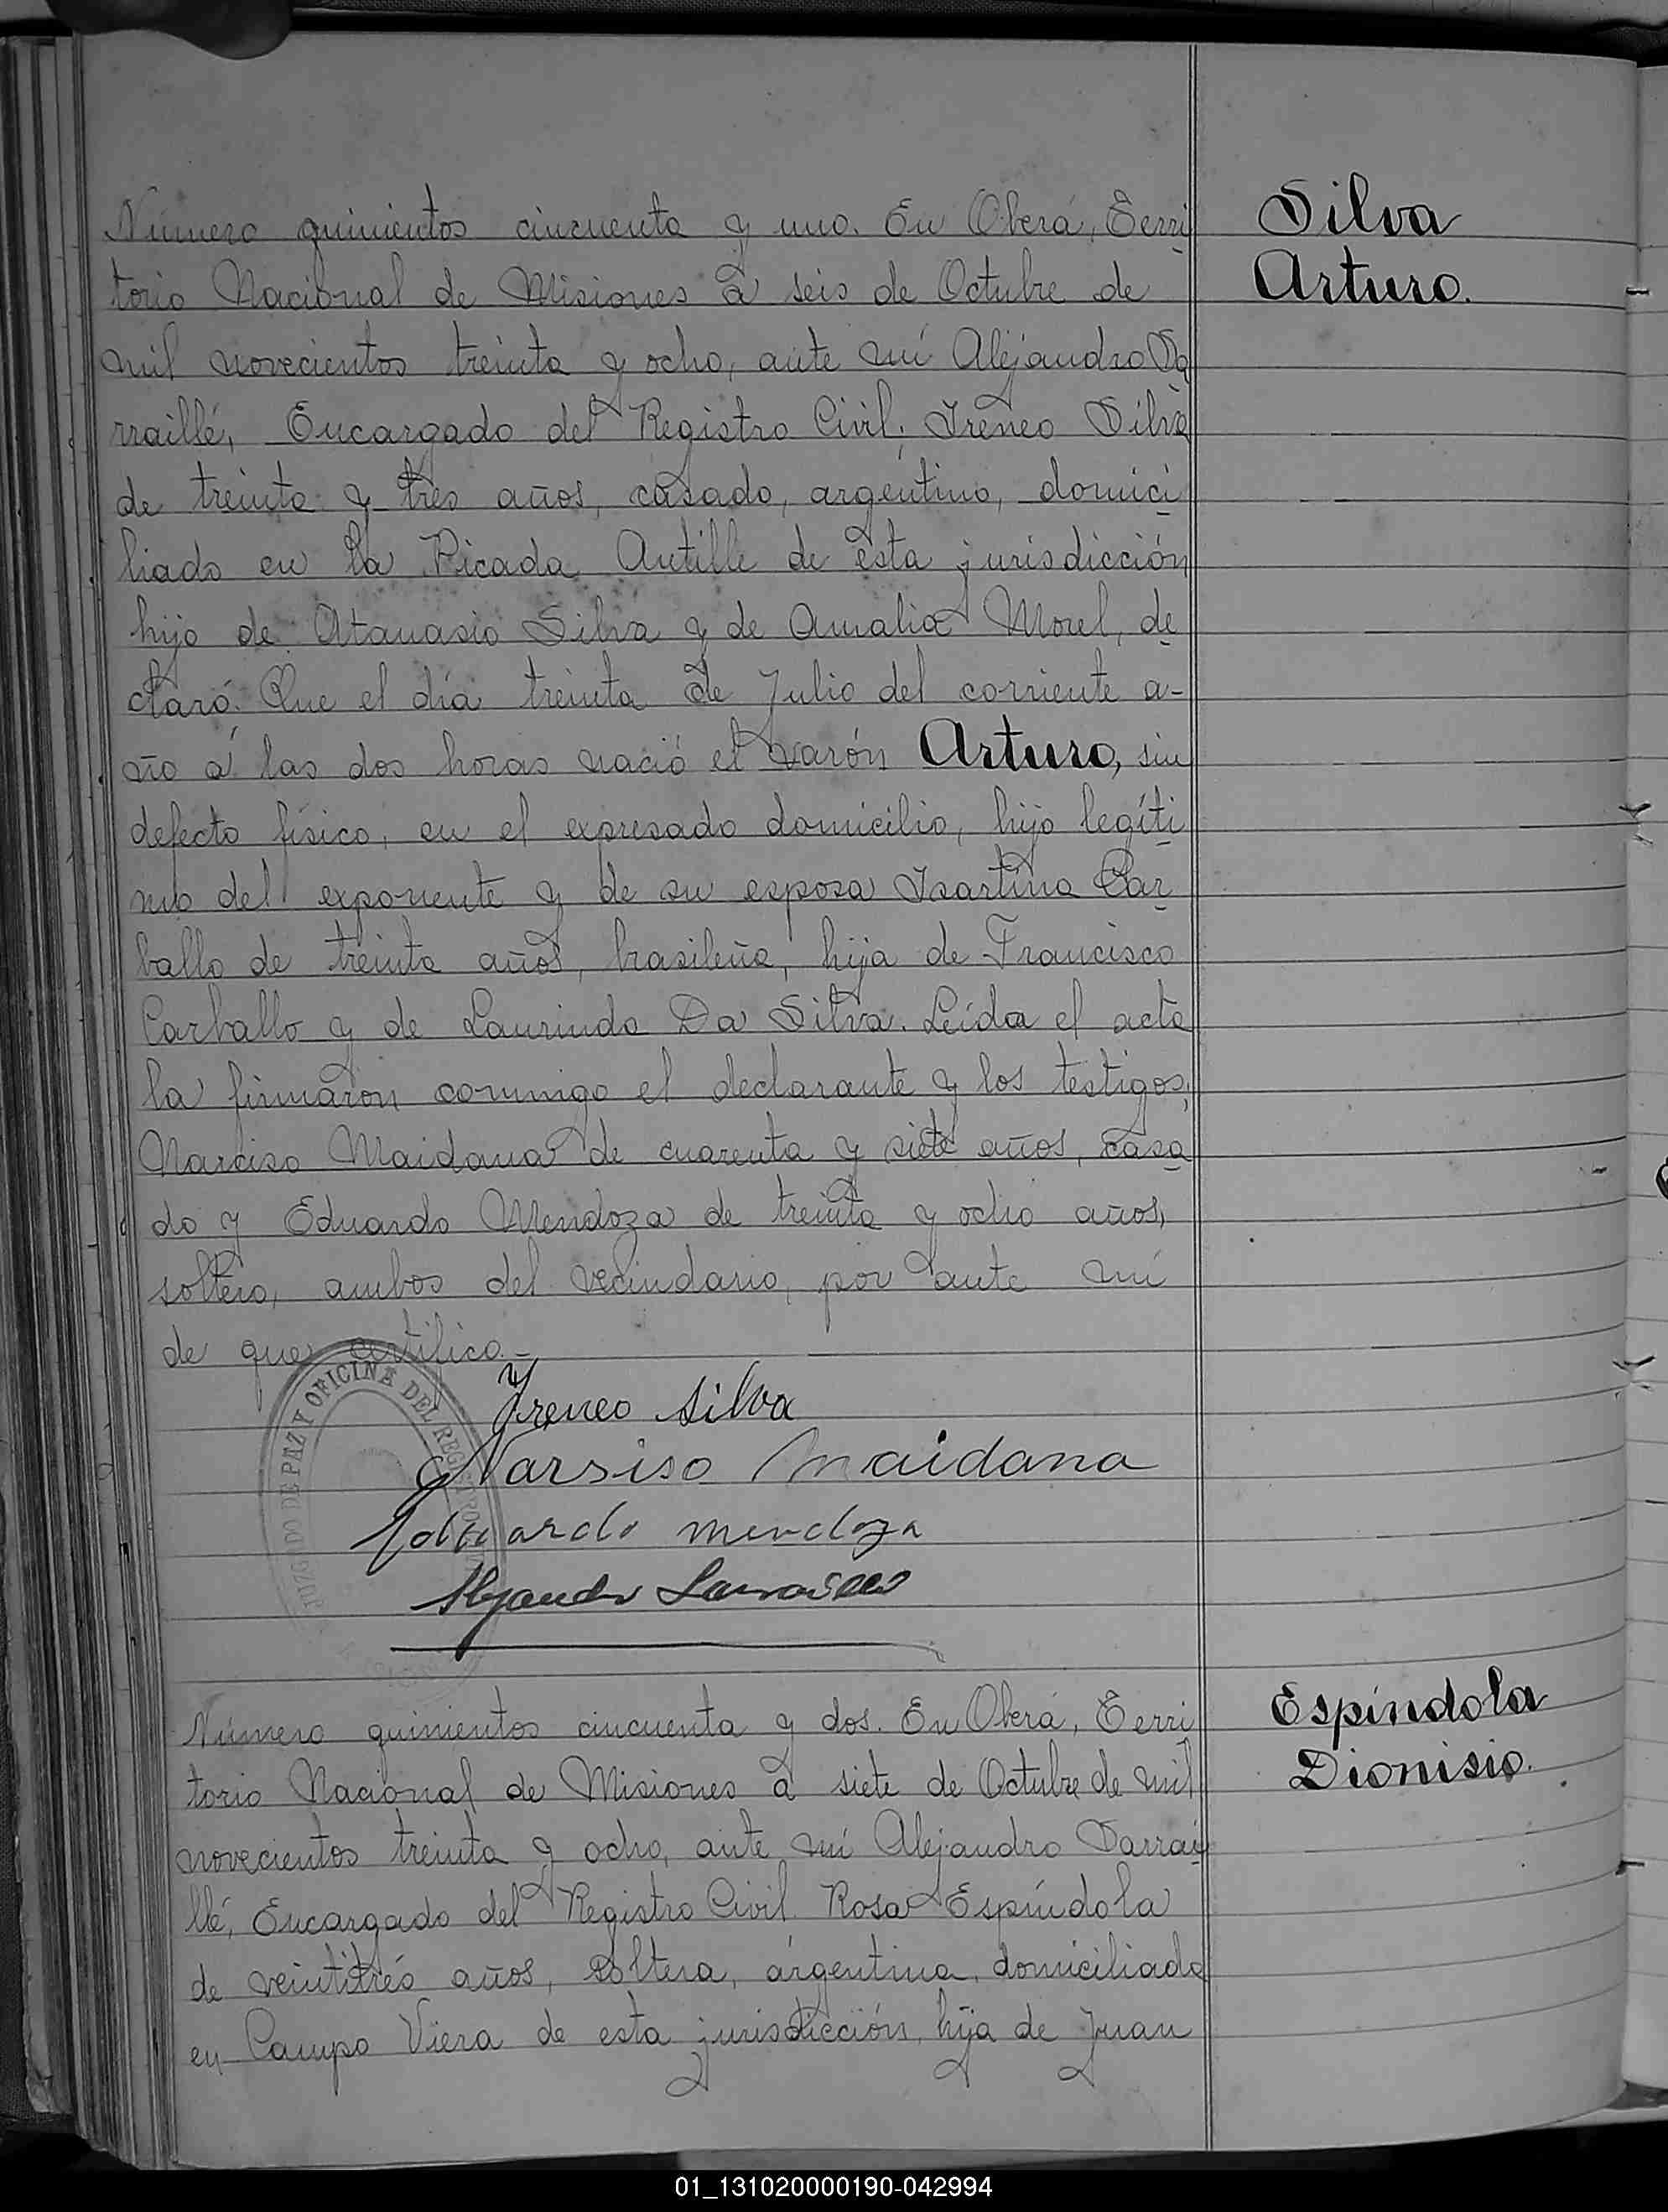 Silva
Arturo.
Número quinientos cincuenta y uno. En Oberá, Terri
torio Nacional de Misiones a seis de Octubre de
mil novecientos treinta y ocho, ante mí Alejandro Da
rraillé, Encargado del Registro Civil; Ireneo Silva
de treinta y tres años, casado, argentino, domici
liado en la Picada Autille de esta jurisdicción
hijo de Atanasio Silva y de Amalia Morel, de
claró: Que el día treinta de Julio del corriente a-
ño á las dos horas nació el varón Arturo, sin
defecto físico, en el expresado domicilio, hijo legíti
mo del exponente y de su esposa Isartina Car
ballo de treinta años, brasileña, hija de Francisco
Carballo y de Laurinda Da Silva. Leída el acta
la firmaron conmigo el declarante y los testigos,
Narciso Maidana de cuarenta y siete años, casa
do y Eduardo Mendoza de treinta y ocho años,
soltero, ambos del vecindario, por ante mí
de que certifico.-
JUZGADO DE PAZ Y OFICINA DEL REGISTRO
Yreneo Silva
Narsiso Maidana
Eduardo Mendoza
Espíndola
Dionisio.
Número quinientos cincuenta y dos. En Oberá, Terri
torio Nacional de Misiones a siete de Octubre de mil
novecientos treinta y ocho, ante mí Alejandro Darrai
llé, Encargado del Registro Civil. Rosa Espíndola
de veintitrés años, soltera, argentina, domiciliada
en Campo Viera de esta jurisdicción, hija de Juan
01_131020000190-042994